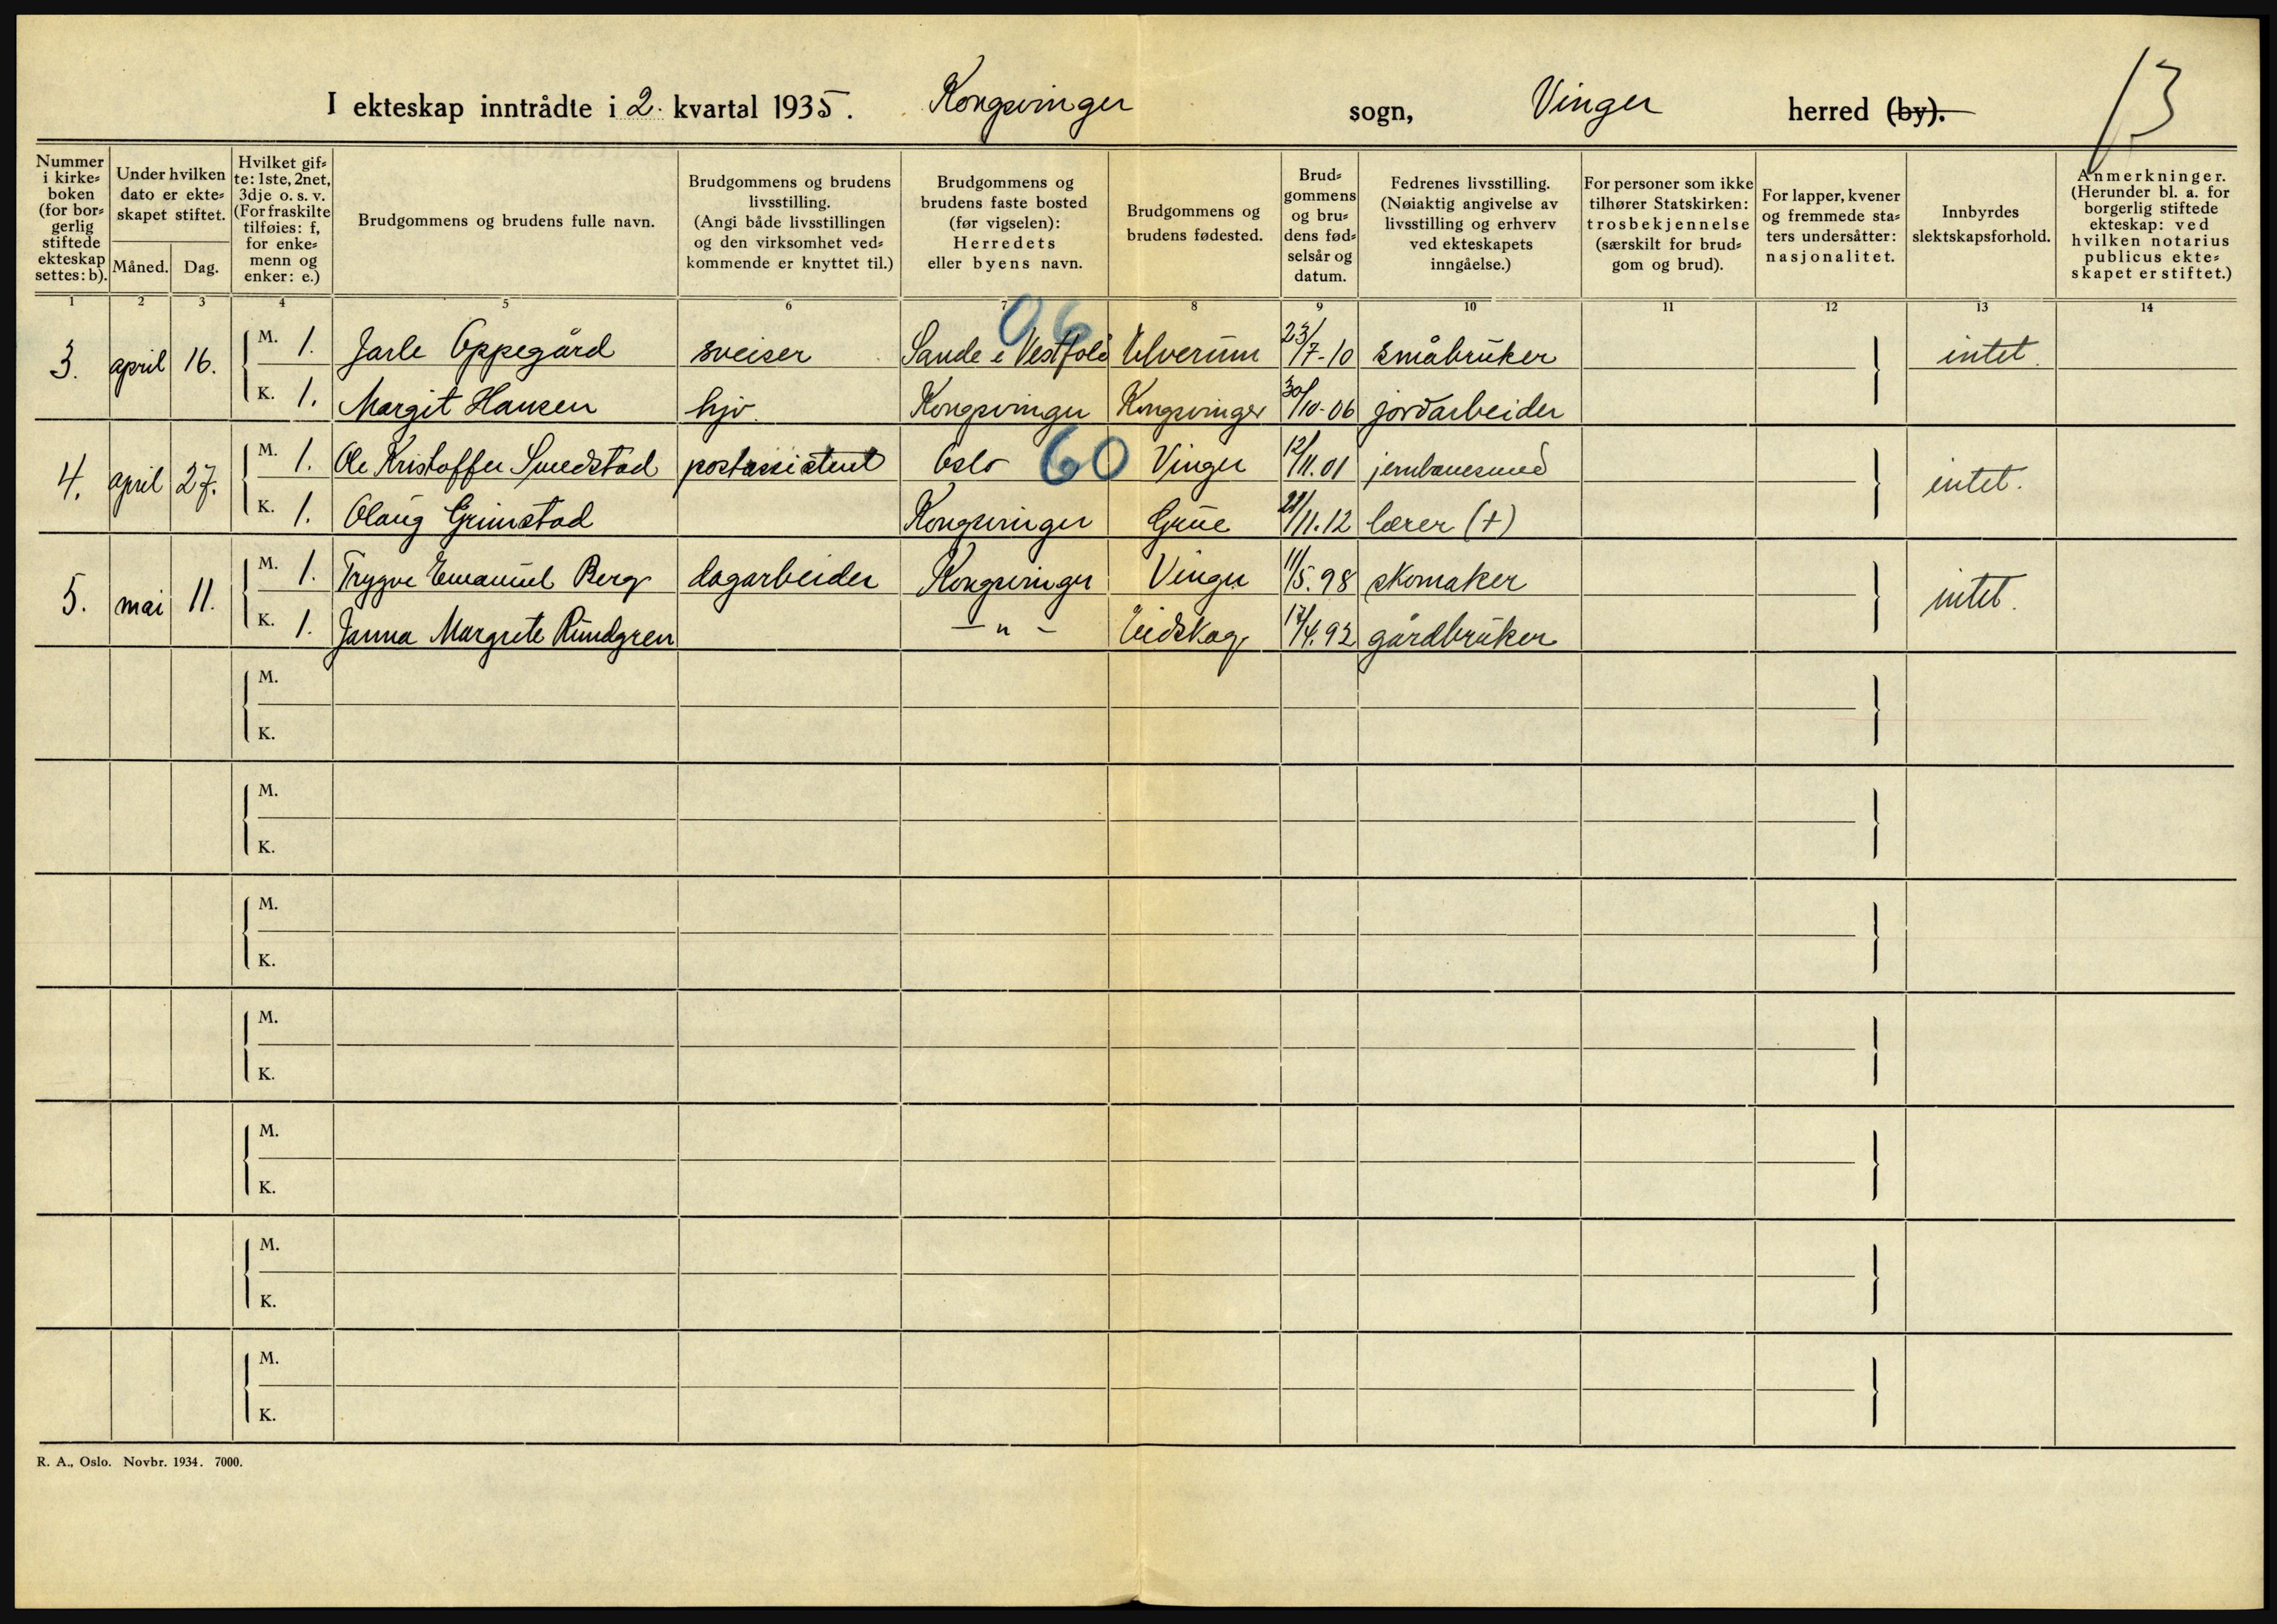 I ekteskap inntrådte i 2. kvartal 1935. Kongsvinger sogn, Vinger herred (by).
13
Nummer i kirke= boken (for bor= gerlig stiftede ekteskap settes: b).
Under hvilken dato er ekte= skapet stiftet.
Måned. Dag.
Hvilket gif= te: 1ste, 2net, 3dje o. s. v. (For fraskilte tilføies: f, for enke= menn og enker: e.)
Brudgommens og brudens fulle navn.
Brudgommens og brudens livsstilling. (Angi både livsstillingen og den virksomhet ved= kommende er knyttet til.)
Brudgommens og brudens faste bosted (før vigselen): Herredets eller byens navn.
Brudgommens og brudens fødested.
Brud= gommens og bru= dens fød= selsår og datum.
Fedrenes livsstilling. (Nøiaktig angivelse av livsstilling og erhverv ved ekteskapets inngåelse.)
For personer som ikke tilhører Statskirken: trosbekjennelse (særskilt for brud= gom og brud).
For lapper, kvener og fremmede sta= ters undersåtter: nasjonalitet.
Innbyrdes slektskapsforhold.
Anmerkninger. (Herunder bl. a. for borgerlig stiftede ekteskap: ved hvilken notarius publicus ekte= skapet er stiftet.)
1 2 3 4 5 6 7 8 9 10 11 12 13 14
06
3. april 16. M. 1. Jarle Oppegård sveiser Sande i Vestfold Elverum 23/7-10 småbruker intet.
K. 1. Margit Hansen hjv. Kongsvinger Kongsvinger 30/10-06 jordarbeider
4. april 27. M. 1. Ole Kristoffer Smedstad postassistent Oslo 60 Vinger 12/11.01 jernbanesmed intet.
K. 1. Olaug Grimstad Kongsvinger Grue 21/11.12 lærer (+)
5. mai 11. M. 1. Trygve Emanuel Berg dagarbeider Kongsvinger Vinger 11/5.98 skomaker intet.
K. 1. Janna Margrete Rundgren — " – Eidskog 17/4.92 gårdbruker
M.
K.
M.
K.
M.
K.
M.
K.
M.
K.
M.
K.
M.
K.
R. A., Oslo. Novbr. 1934. 7000.